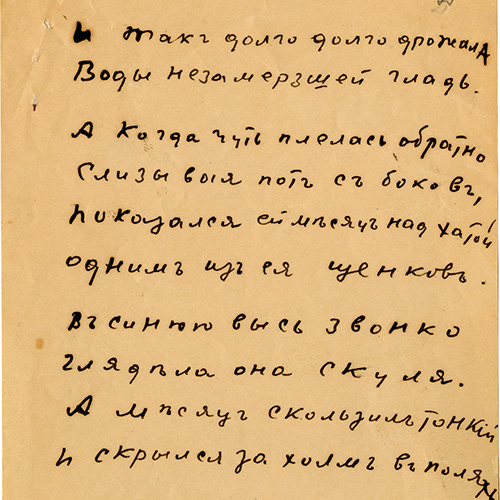 И такъ долго долго дрожала
Воды незамерзшей гладь.
А когда чуть плелась обратно
Слизывая потъ съ боковъ,
Показался ей мѣсяцъ над хатой
однимъ изъ ея щенковъ.
Въ синюю высь звонко
Глядѣла она скуля.
А мѣсяцъ скользилъ тонкій
И скрылся за холмъ въ полях